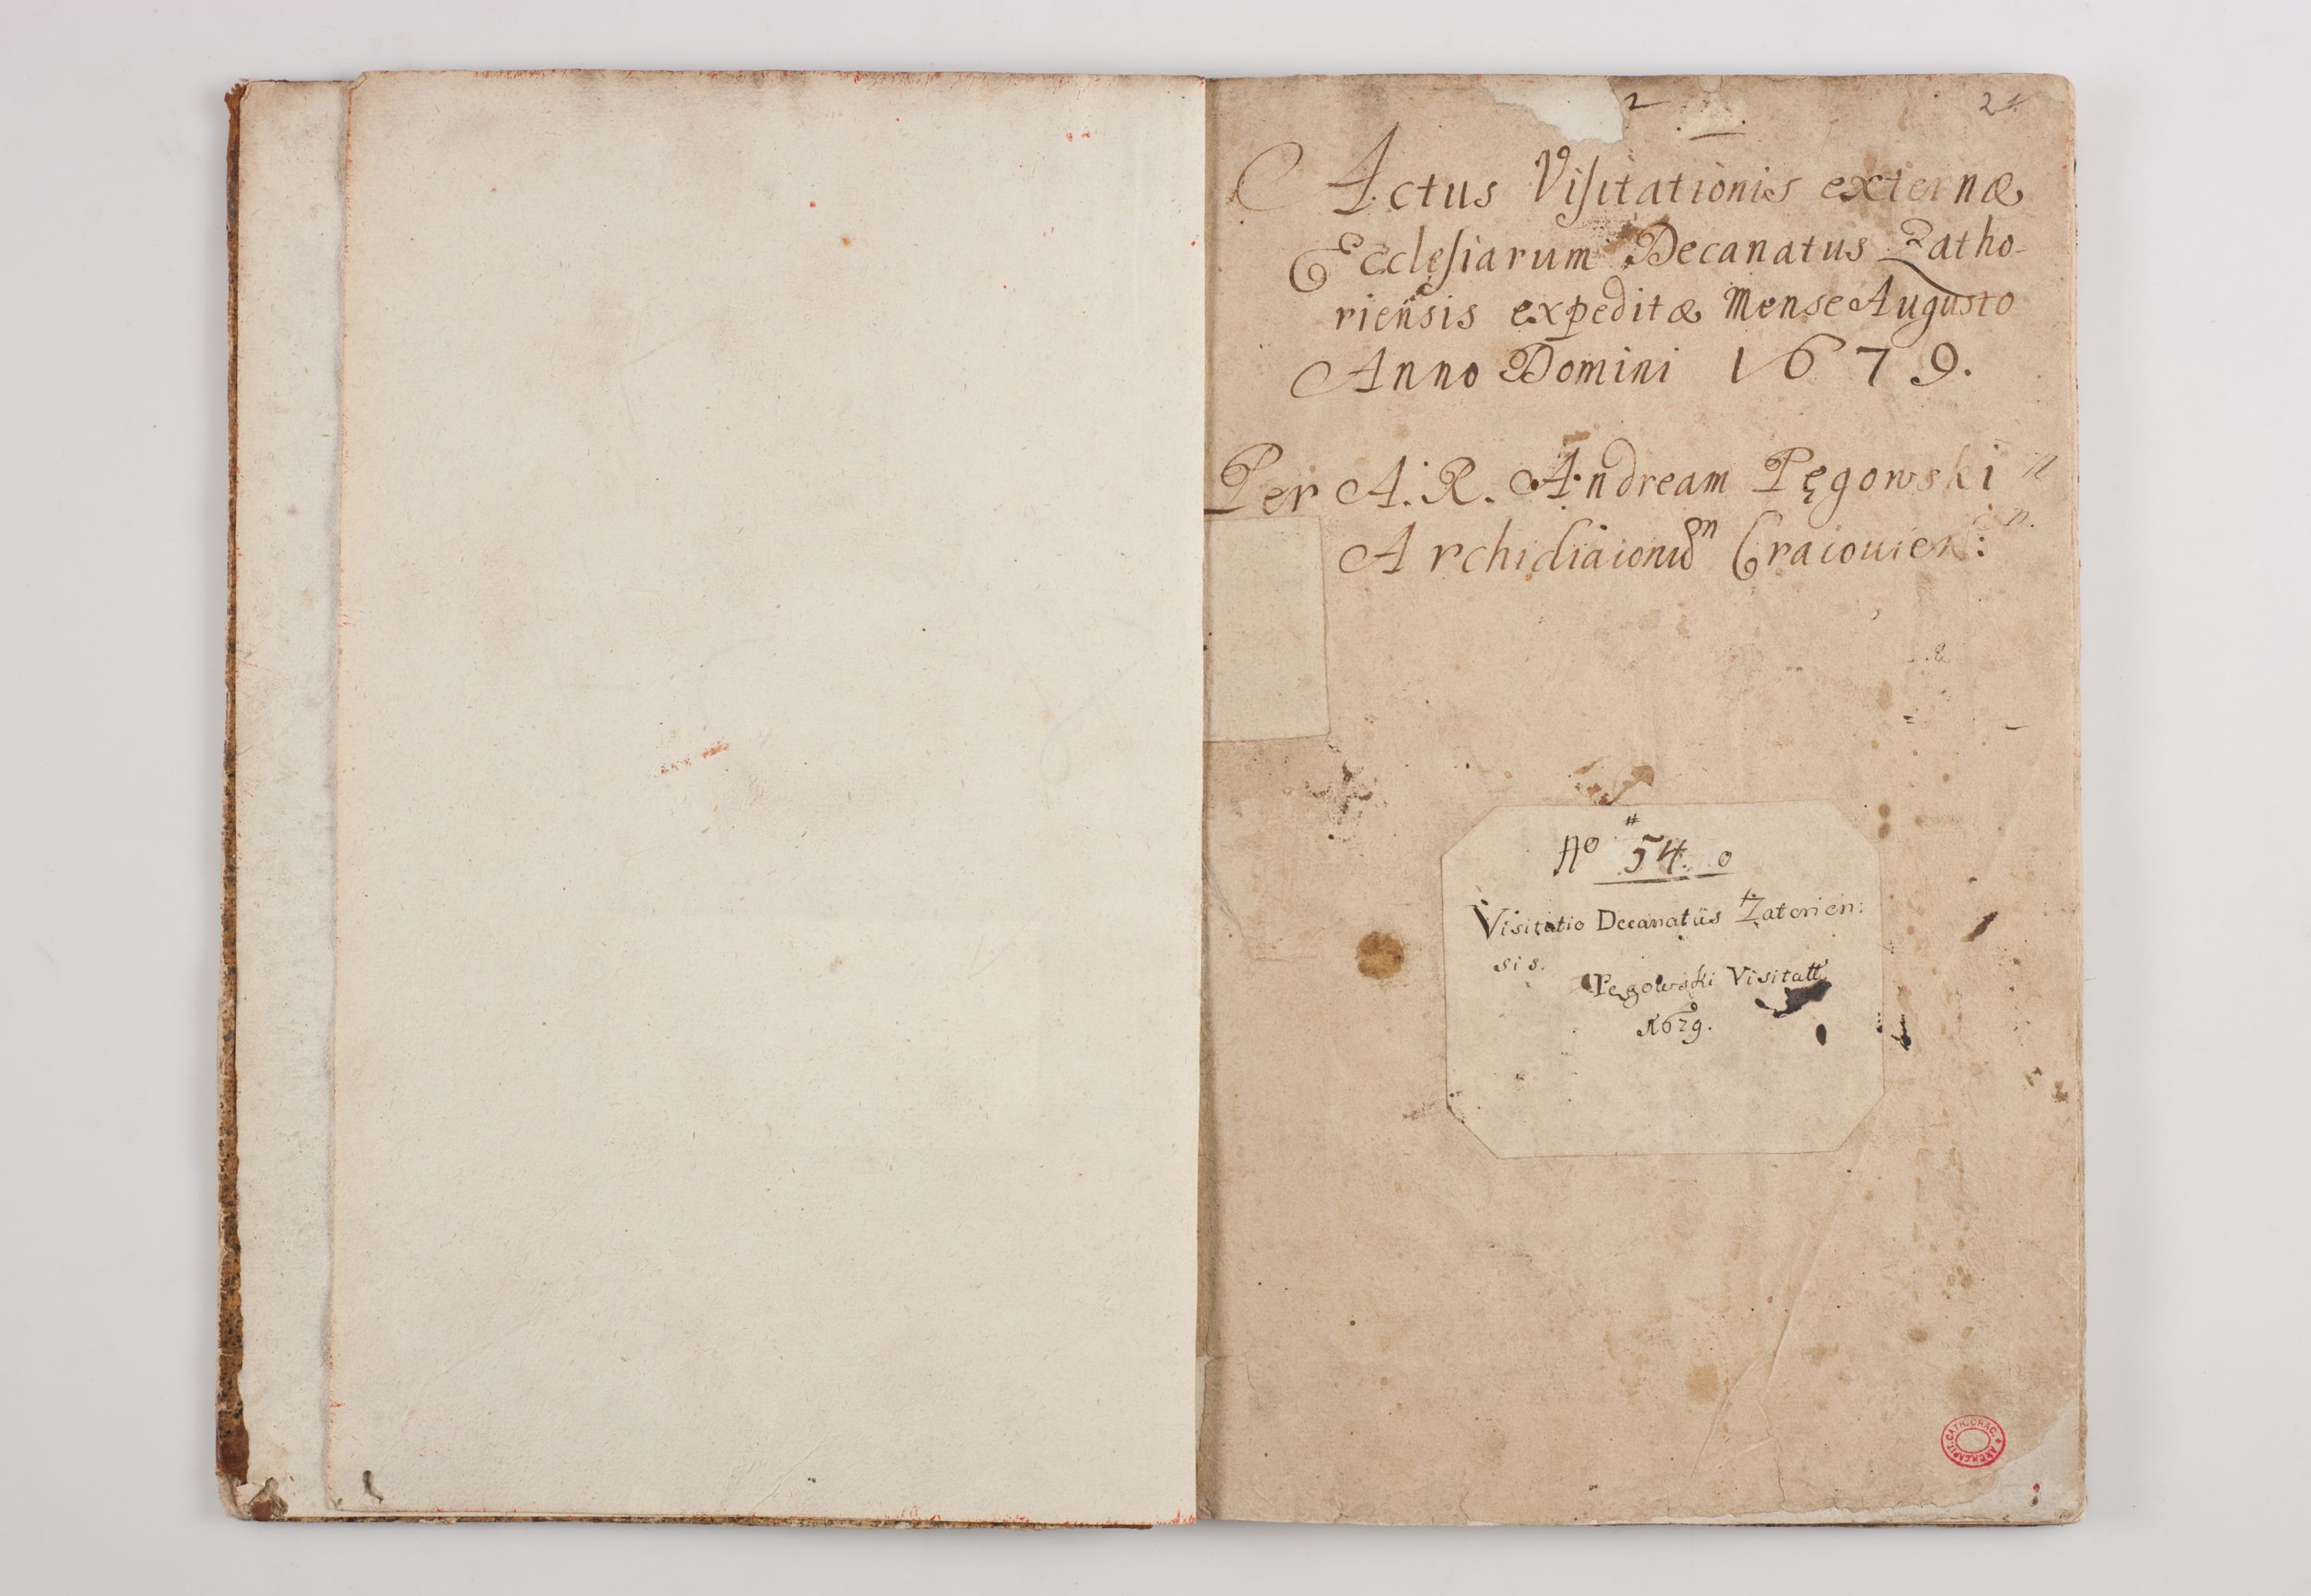 2
24
Actus Visitationis externæ
Ecclęsiarum Decanatus Zatho-
rieñsis expeditæ Mense Augusto
Anno Domini 1679.
Per A. R. Andream Pęgowski
Cracovien:
No 54. o
Visitatio Decanatûs Zatorien:
sis.
Pęgowski Visitatt
1679.
ARCH. CAPIT. CATH. CRAC.